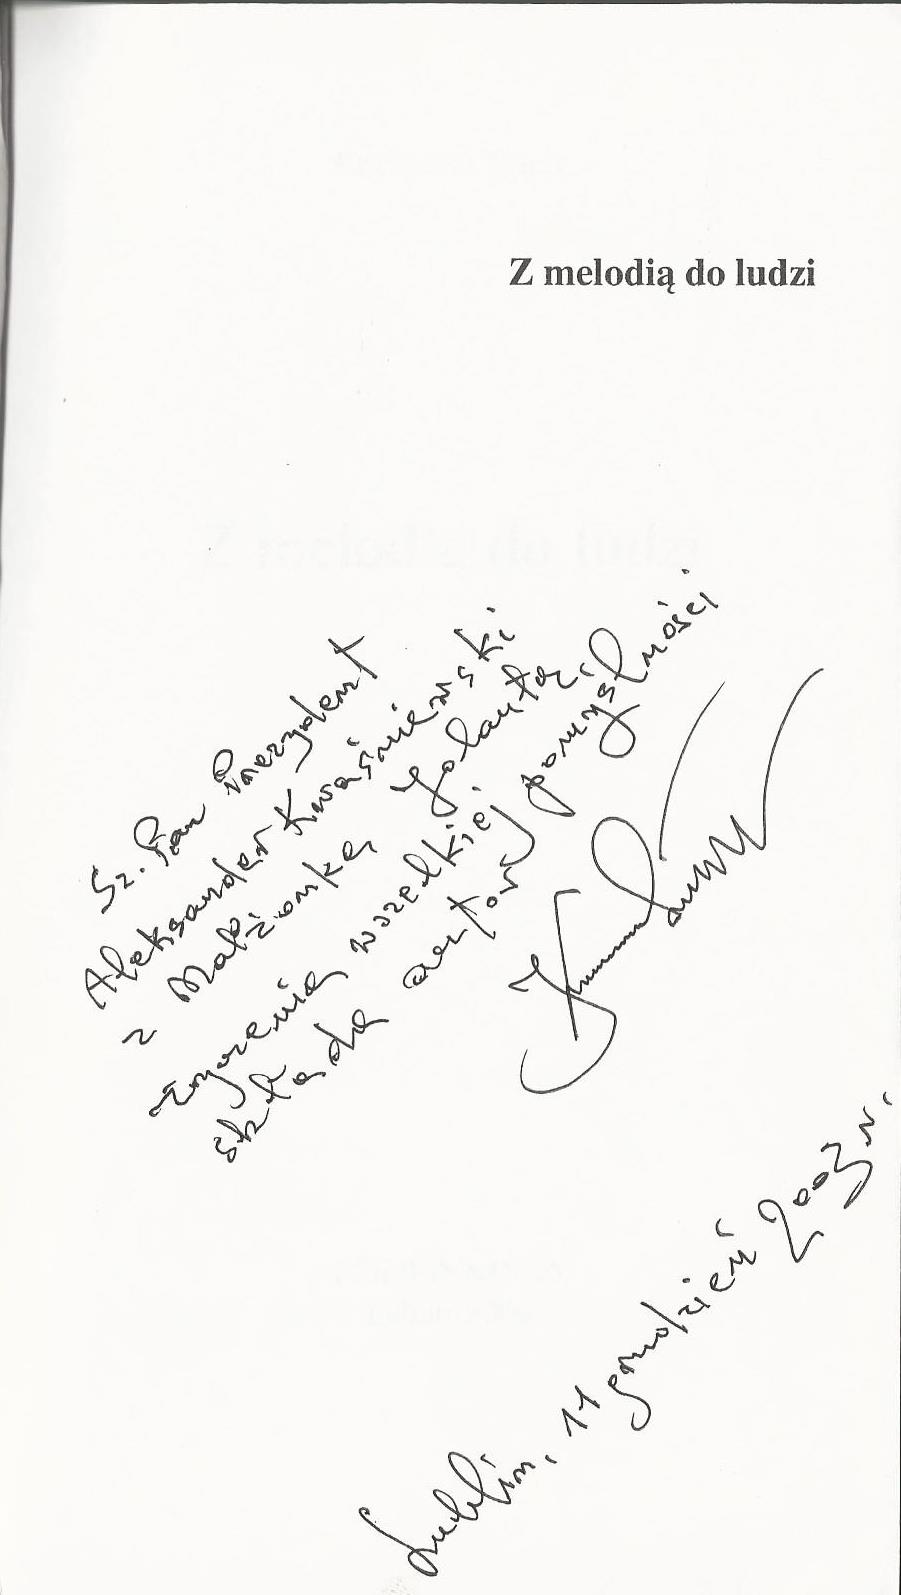 Z melodią do ludzi
Sz. Pan Prezydent
Aleksander Kwaśniewski
z Małżonką Jolantą,
życzenia wszelkiej pomyślności
składa autor
Lublin, 11 grudzień 2003 r.